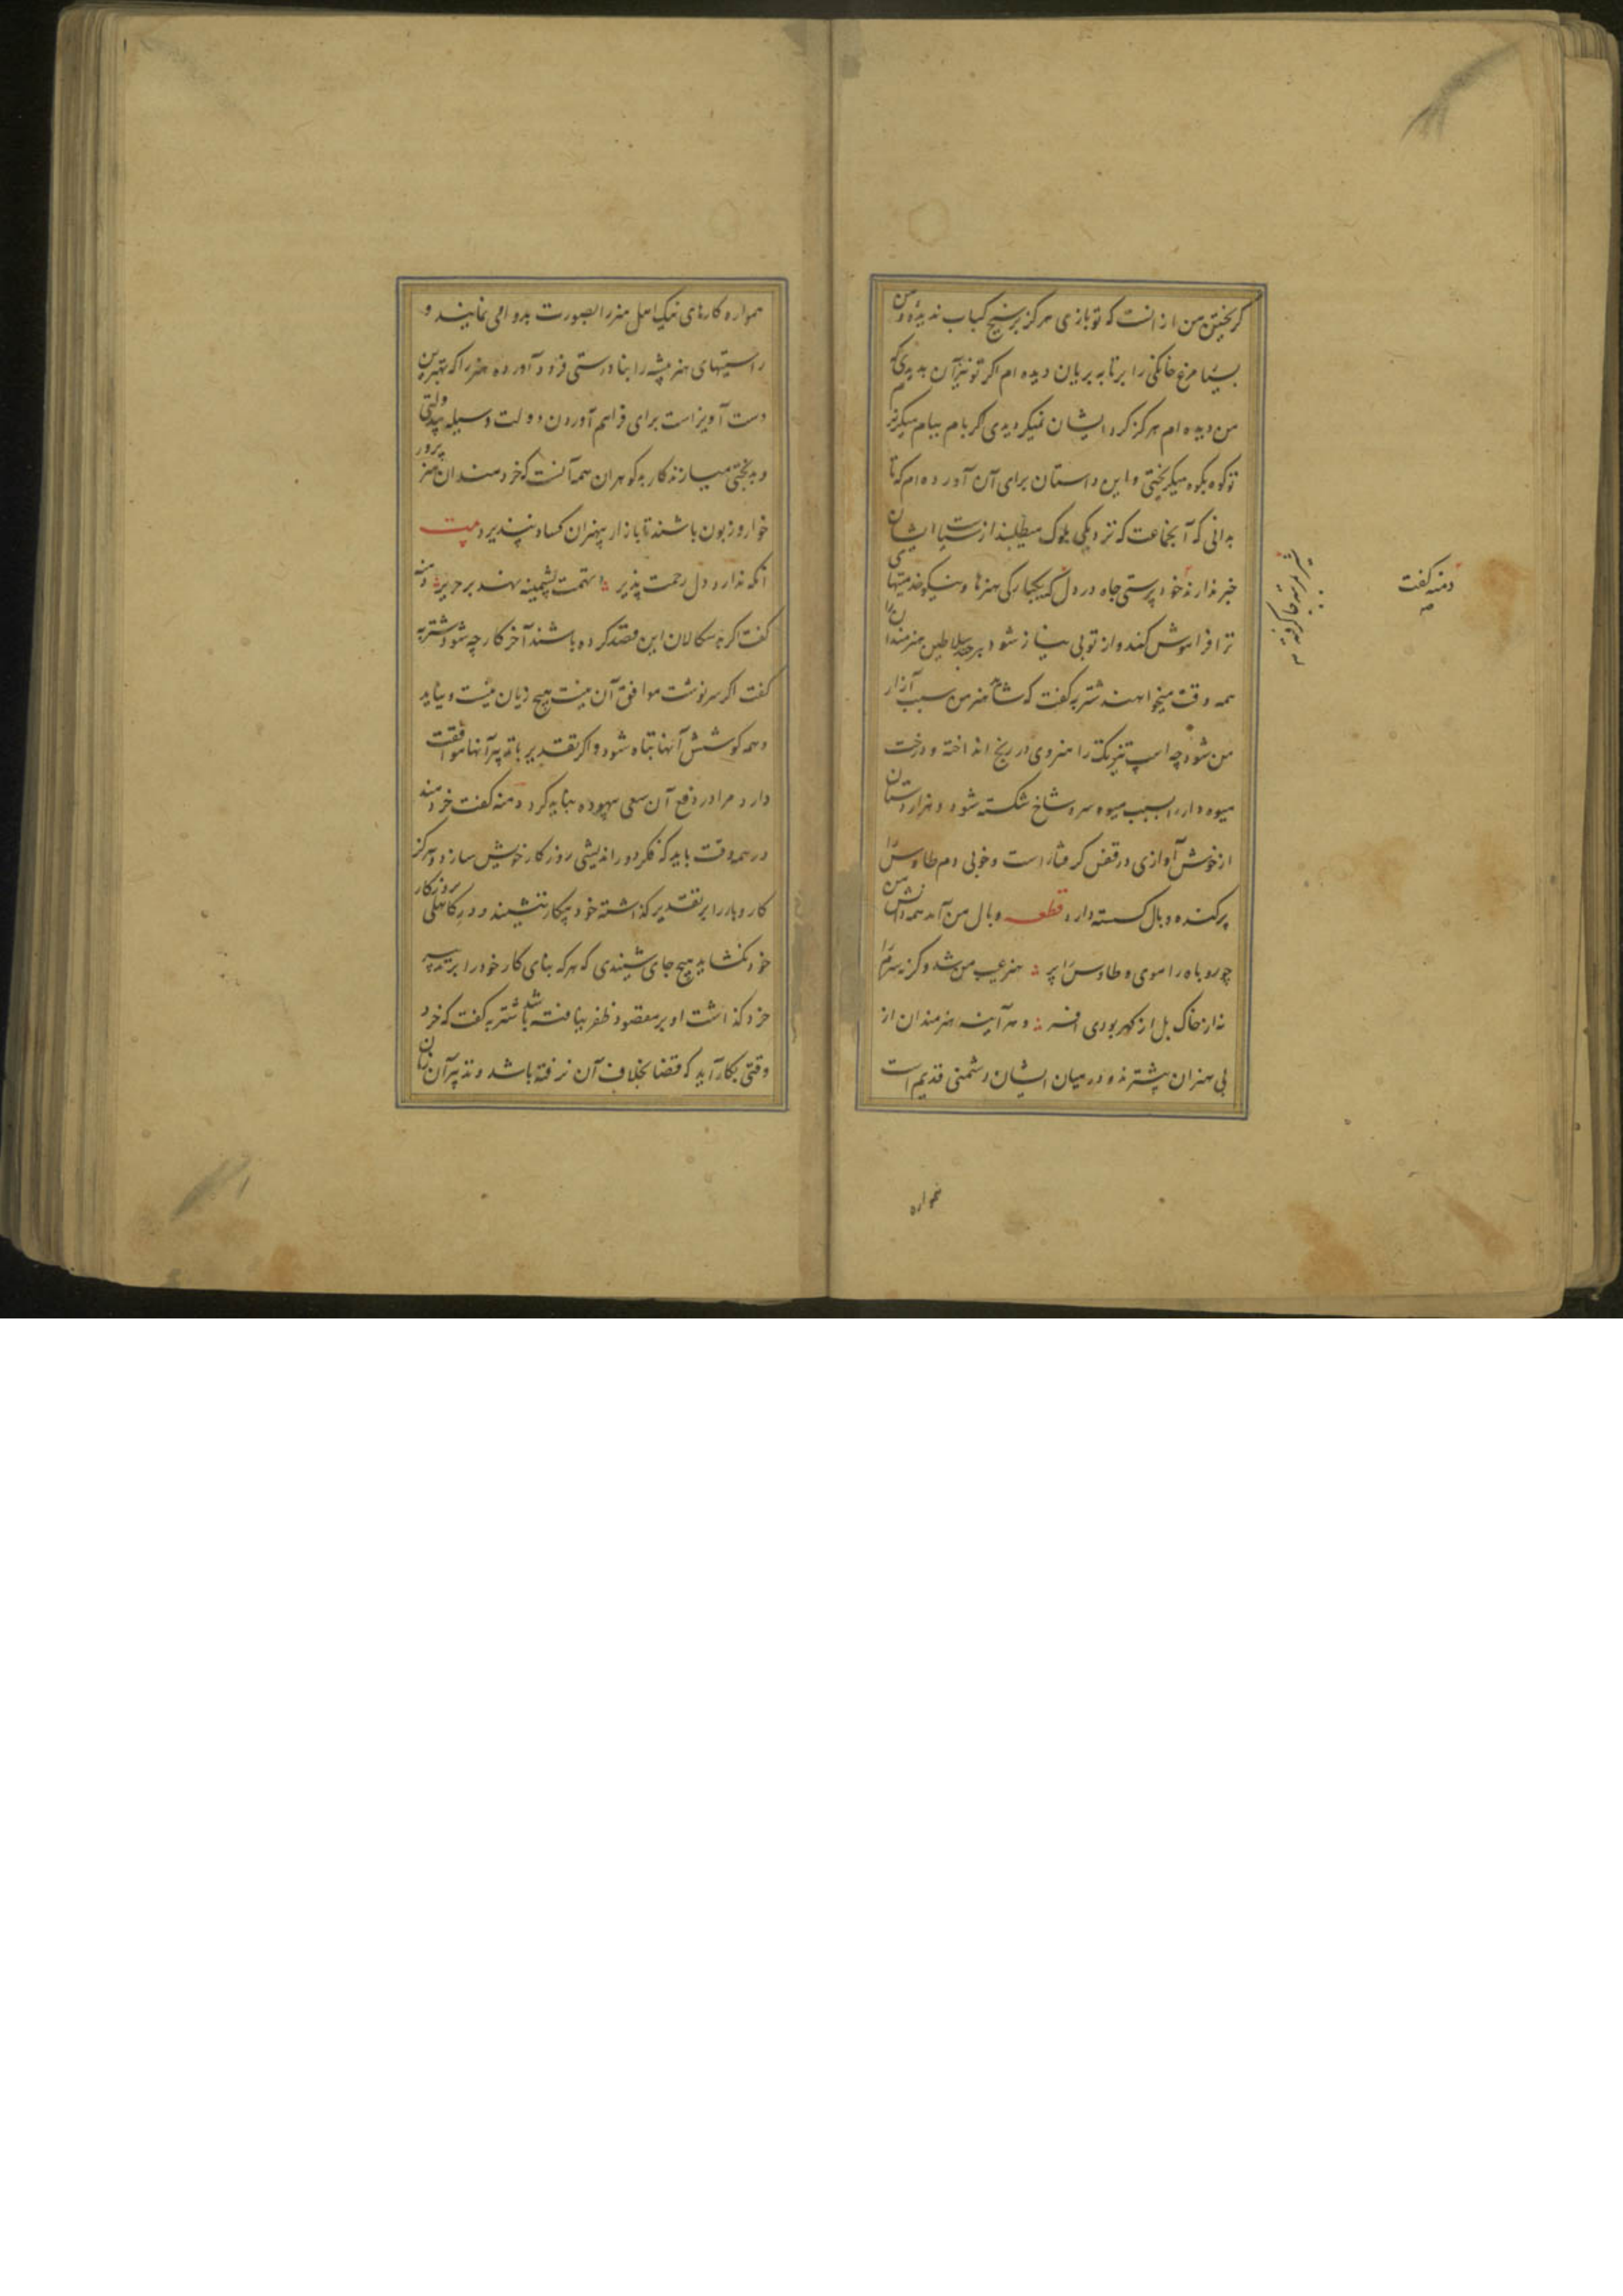 گریختن من از انست که تو بازی هرگز بر سیخ کباب ندیده و من
بسیار مرغ خانگی را بر تابه بریان دیده ام اگر تو نیز آن بدیدی که
من دیده ام هرگز گرد ایشان نمیگردیدی اگر من بام ببام میگریزم
تو کوه بکوه میگریختی و این داستان برای آن آورده ام که تا
بدانی که آنجماعت که نزدیکی ملوک میطلبند از سیاست ایشان
خبر ندارند خود پرستی جاه در دل که یکبارگی هنرها و نیکو خدمتیهای
ترا فراموش کند و از تو بی نیاز شود هر چند سلاطین هنرمندان را
همه وقت میخواهند شتربه گفت که شاید هنر من سبب آزار
من شود چه اسپ تیز تک را هنر وی در رنج انداخته و درخت
میوه دار را بسبب میوه سر و شاخ شکسته شود و هزاردستان
از خوش آوازی در قفس گرفتار است و خوبی دم طاوس را
پرکنده و بال گسسته دارد قطعه وبال من آمد همه دانش من
چو روباه را موی و طاوس را پر هنر عیب من شد وگرنه سرم را
نه از خاک بل از گهر بودی افسر و هر آینه هنرمندان از
بی هنران بیشترند و در میان ایشان دشمنی قدیم است
دمنه گفت
همواره
همواره کارهای نیک اهل هنر را بصورت بد وا می نمایند و
راستیهای هنر پیشه را بنا درستی فرود آورده هنر را که بهترین
دست آویز است برای فراهم آوردن دولت وسیله بیدولتی
و بدبختی میسازند کار بد گوهران همه آنست که خردمندان هنر پرور
خوار و زبون باشند تا بازار بیهنران کساد نپذیرد بیت
آنکه ندارد دل رحمت پذیر تهمت پشمینه نهند بر حریر دمنه
گفت اگر بد سگالان این قصد کرده باشند آخر کار چه شود شتربه
گفت اگر سرنوشت موافق آن نیست هیچ زیان نیست و نیاید
و همه کوشش آنها تباه شود و اگر تقدیر با تدبیر آنها موافقت
دارد مرا در دفع آن سعی بیهوده نباید کرد دمنه گفت خردمند
در همه وقت باید که فکر دور اندیشی روزگار خویش سازد و هرگز
کار و بار را بر تقدیر گذاشته خود بیکار ننشیند و در کاهلی روزگار
خود نگشاید هیچ جای شنیدی که هر که بنای کار خود را بر تدبیر
خرد گذاشت او بر مقصود ظفر نیافته باشد شتربه گفت که خرد
وقتی بکار آید که قضا بخلاف آن نرفته باشد و تدبیر آن زمان